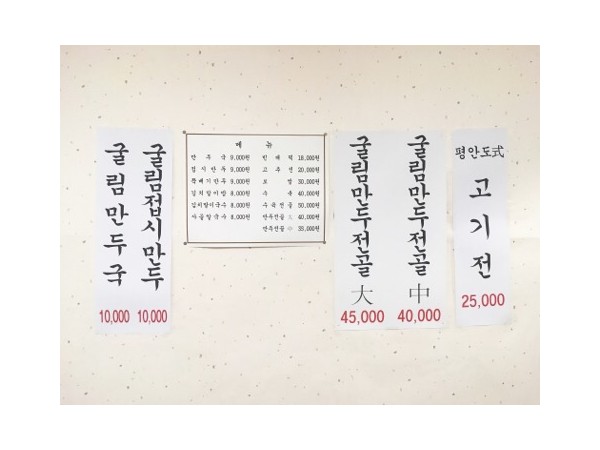 굴림만두국
10,000
굴림접시만두
10,000
메 뉴
만 두 국 9,000원 빈 대 떡 18,000원
접 시 만 두 9,000원 고 추 전 20,000원
뚝배기만두 9,000원 보 쌈 30,000원
김치말이밥 8,000원 수 육 40,000원
김치말이국수 8,000원 수 육 전 골 50,000원
사골칼국수 8,000원 만두전골 大 40,000원
만두전골 中 35,000원
굴림만두전골 大
45,000
굴림만두전골 中
40,000
평안도式
고기전
25,000